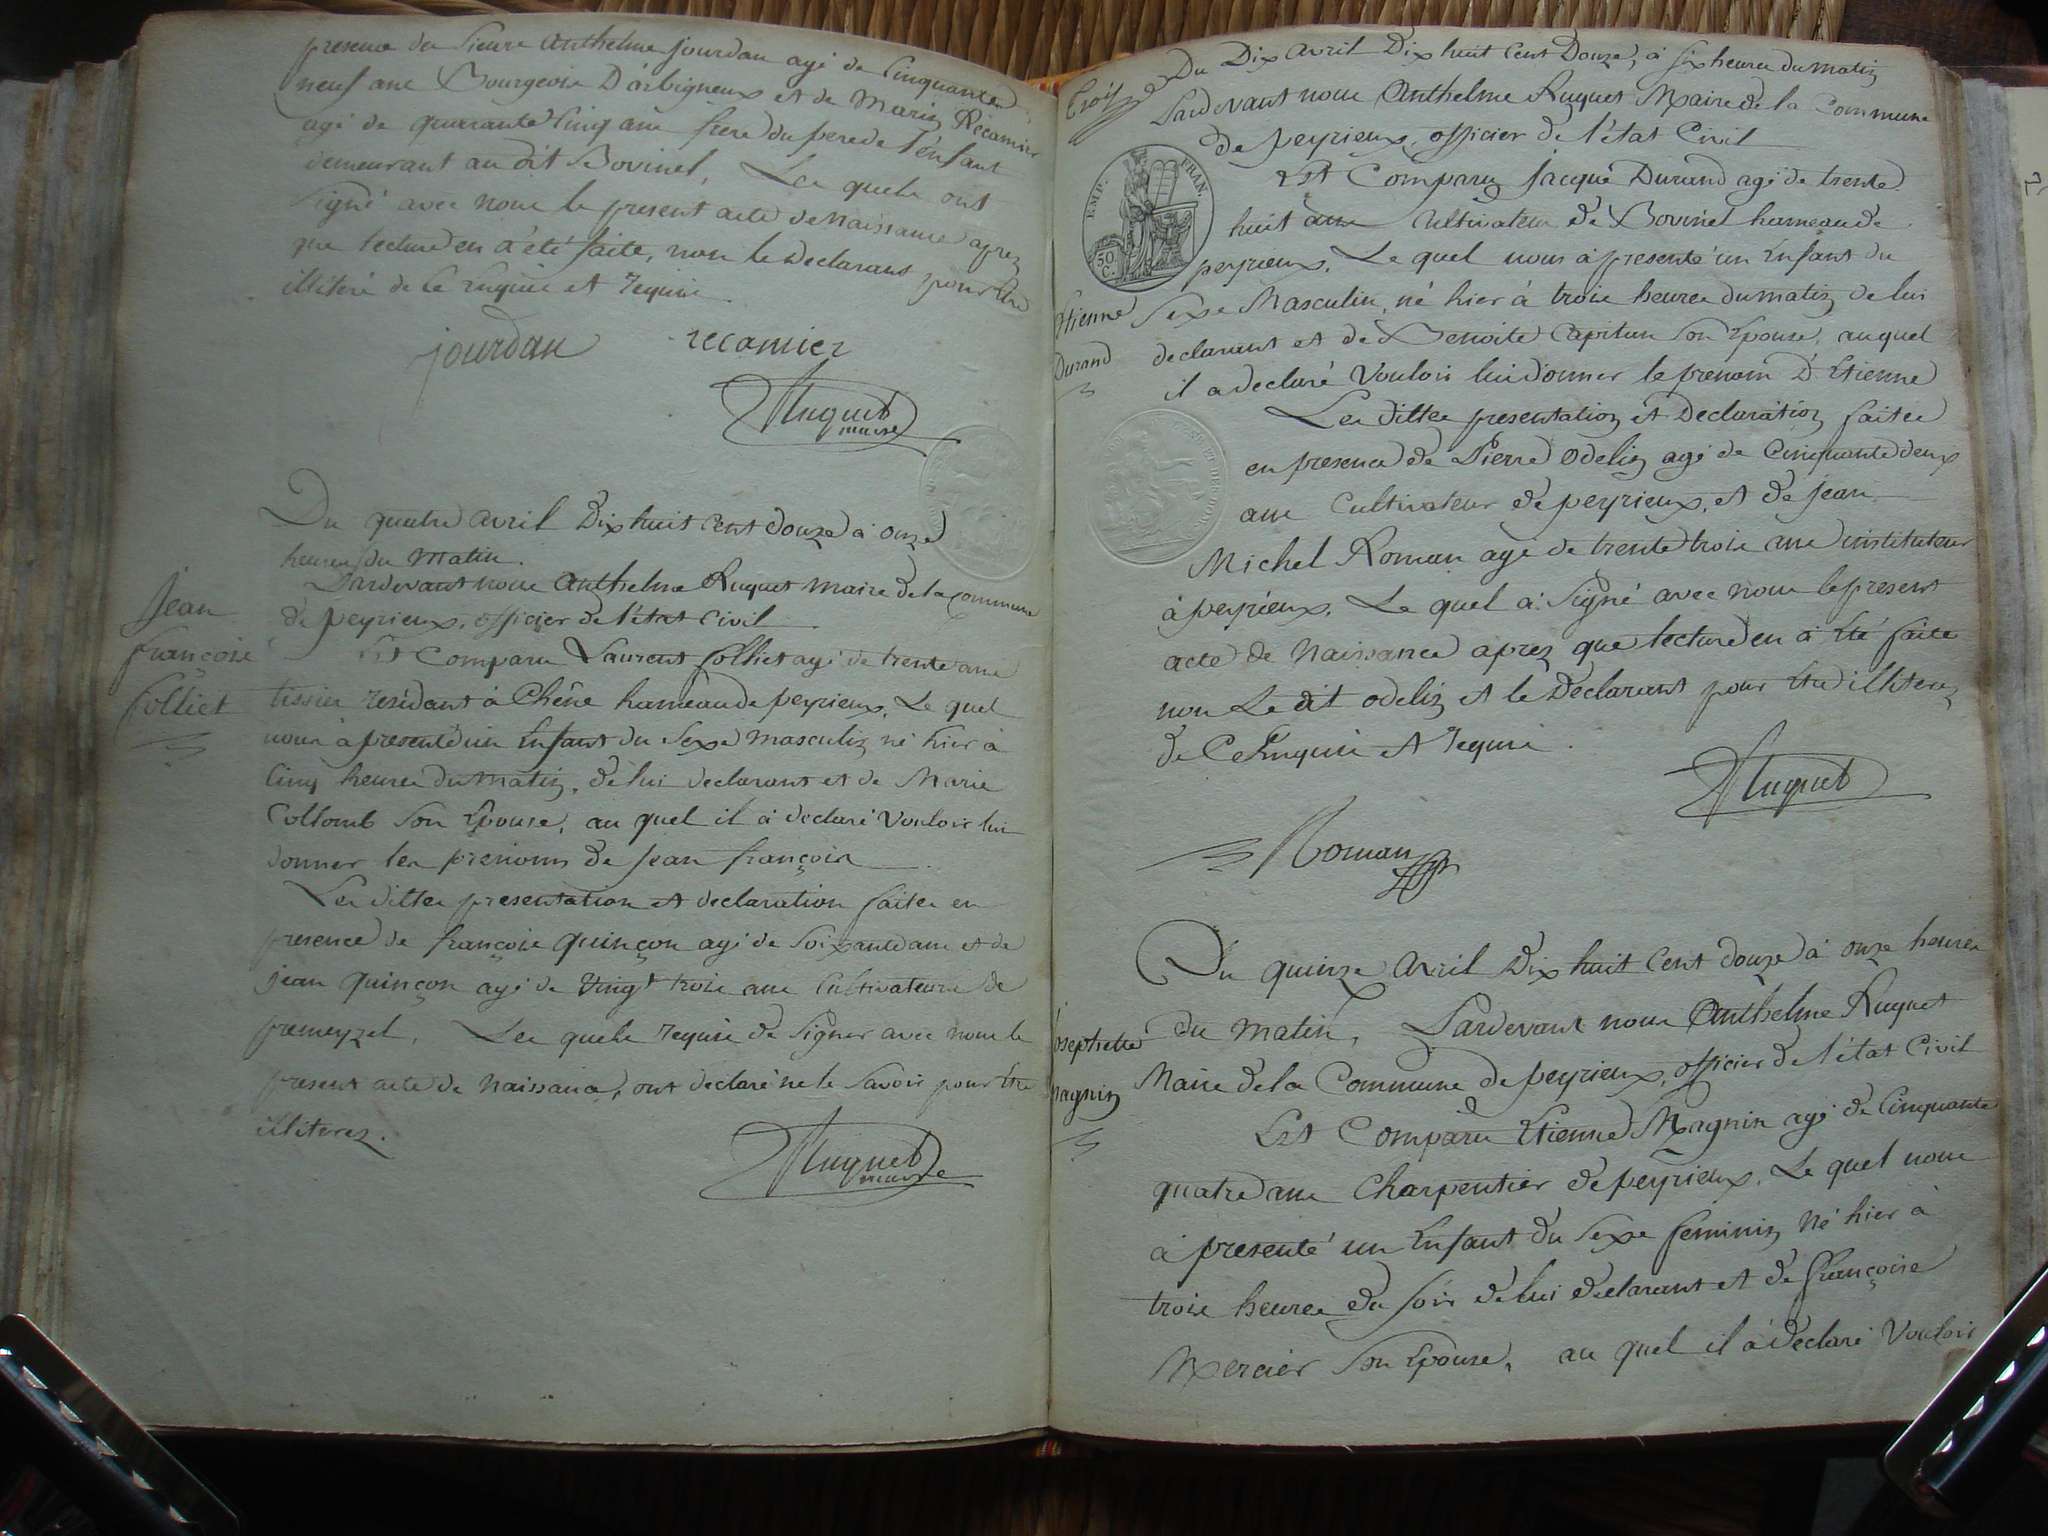 presence du sieure Anthelme jourdan agé de Cinquante
neuf ans Bourgeois D'arbigneux et de Marin Récamier
agé de quarante Cinq ans frere du pere de l'énfant
demeurant au dit Bovinel, Les quels ont
signé avec nous le present acte de Naissance aprez
que lecture en à été faite, non le Declarant pour être
illiteré de Ce Enquis et Requis.
jourdan recamier
Ruquet
maire
Du quatre avril Dix huit Cent douze à onze
heures du Matin.
Pardevant nous Anthelme Ruquet maire de la commune
de peyrieux, officier de l'état Civil
Est Comparu Laurent folliet agé de trente ans
tissier residant à Chêne hameau de peyrieux, Le quel
nous à presenté un Enfant du Sexe masculin né hier à
Cinq heures du Matin, de lui declarant et de Marie
Collomb son Epouse, au quel il à declaré Vouloir lui
donner les prenoms de jean françois
Les dittes presentation et declaration faites en
presence de françois quinçon agé de Soixante ans et de
jean quinçon agé de Vingt trois ans Cultivateurs de
premeyzel, Les quels requis de Signer avec nous le
present acte de Naissance, ont declaré ne le Savoir pour être
illiterez.
Ruquet
maire
Jean
françois
folliet
Trois
Du Dix avril Dix huit Cent Douze, à six heures du matin
Pardevant nous Anthelme Ruquet Maire de la Commune
de peyrieux, officier de l'état Civil
EMP. FRAN.
50 C.
Est Comparu Jacque Durand agé de trente
huit ans Cultivateur de Bovinel hameau de
peyrieux, Le quel nous à presenté un Enfant du
Sexe Masculin, né hier à trois heures du matin de lui
declarant et de Benoite Capitan Son Epouse, au quel
il a declaré Vouloir lui donner le prenom D'Etienne
Les dittes presentation et Declaration faites
en presence de Pierre Odelin agé de Cinquante deux
ans Cultivateur de peyrieux, et de jean
Michel Roman agé de trente trois ans instituteur
à peyrieux, Le quel à Signé avec nous le present
acte de Naissance aprez que lecture en à été faite
non Le dit Odelin et le Declarant pour être illiterez
de Ce Enquis et Requis.
Ruquet
Roman
Etienne
Durand
Du quinze Avril Dix huit Cent douze à onze heures
du Matin, Pardevant nous Anthelme Ruquet
Maire de la Commune de peyrieux, officier de l'état Civil
Est Comparu Etienne Magnin agé de Cinquante
quatre ans Charpentier de peyrieux, Le quel nous
à presenté un Enfant du Sexe feminin né hier à
trois heures du soir de lui declarant et de françoise
Mercier Son Epouse, au quel il à declaré Vouloir
josephette
Magnin